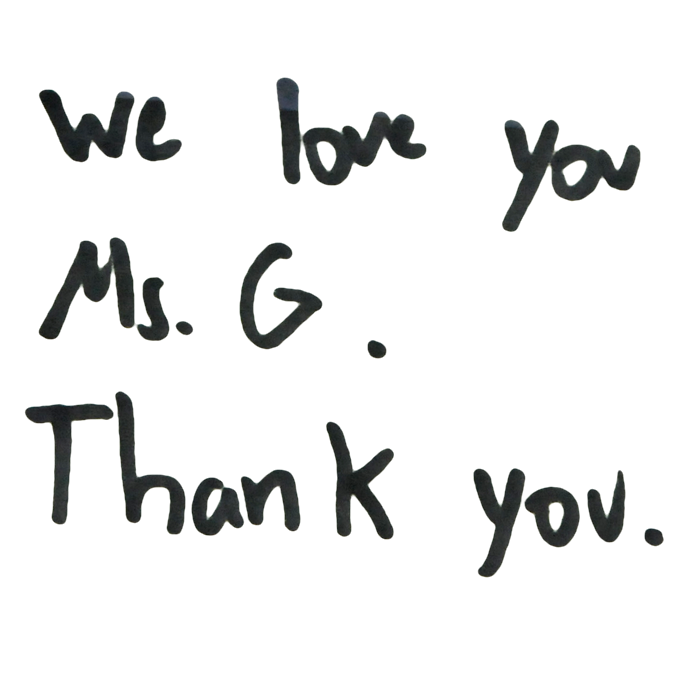 We love you
Ms. G.
Thank you.